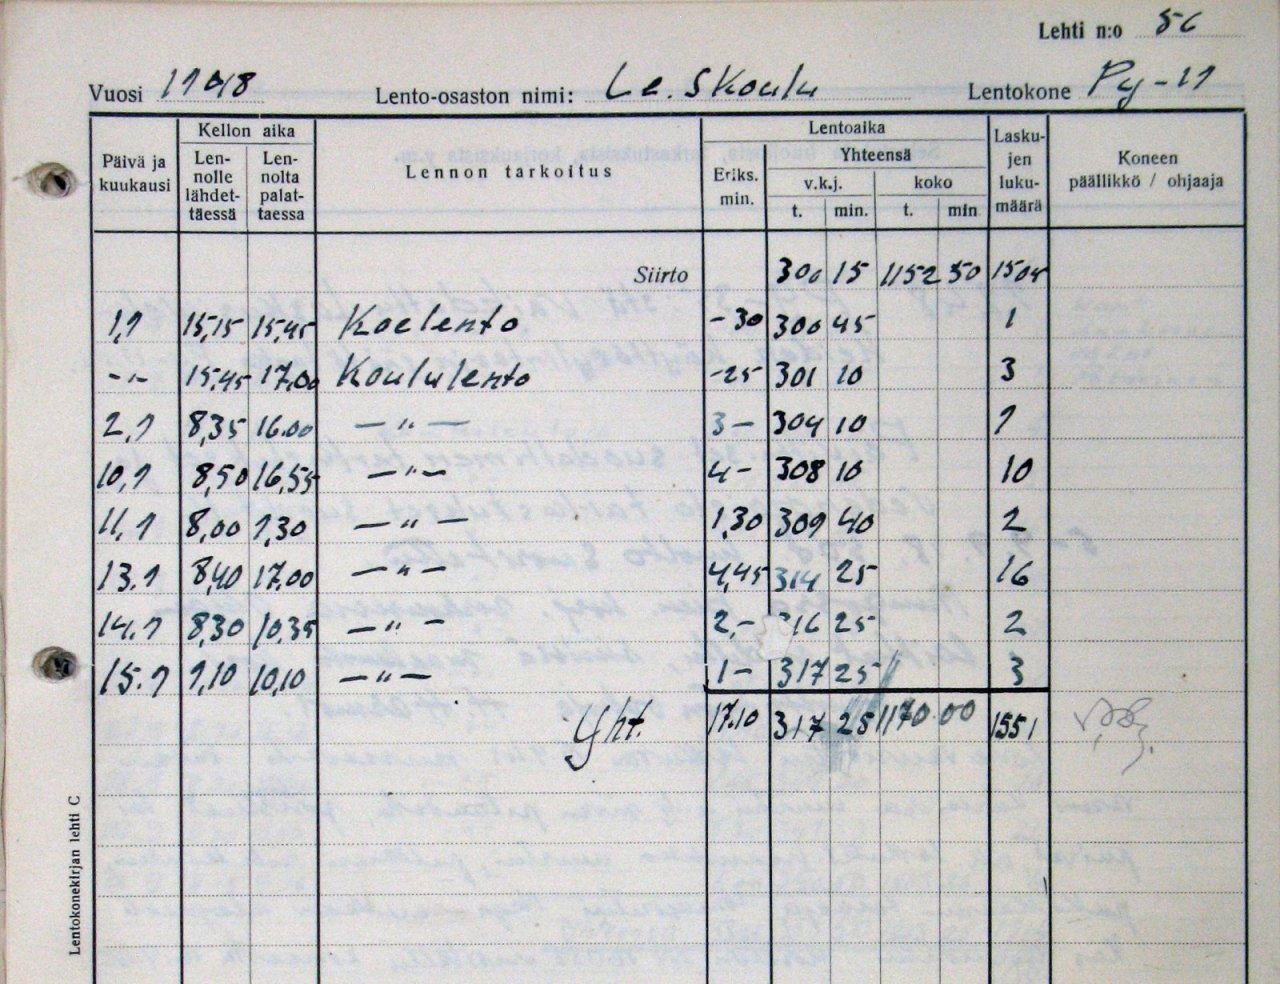 Lehti n:o 56
Vuosi 1948 Lento-osaston nimi: Le. SKoulu Lentokone Py-11
Päivä ja kuukausi Kellon aika Len-nolle lähdet-täessä Len-nolta palat-taessa Lennon tarkoitus Lentoaika Eriks. min. Yhteensä v.k.j. t. min. koko t. min Lasku-jen luku-määrä Koneen päällikkö / ohjaaja
Siirto 300 15 1152 50 1504
1.9 15,15 15,45 Koelento -30 300 45 1
-"- 15,45 17,00 Koululento -25 301 10 3
2.9 8,35 16.00 -"- 3- 304 10 9
10,9 8,50 16,55 -"- 4- 308 10 10
11.9 8,00 9,30 -"- 1,30 309 40 2
13.9 8,40 17.00 -"- 4,45 314 25 16
14.9 8,30 10,35 -"- 2,- 316 25 2
15.9 9,10 10,10 -"- 1- 317 25 3
Yht. 17.10 317 25 1170 00 1551
Lentokonekirjan lehti C